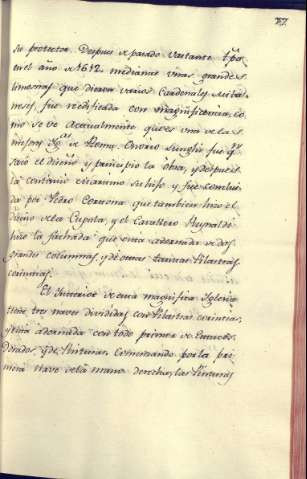 su protector. Despues de pasado bastante tpo.
en el año de 1612 mediante unas grandes
limosnas que dieron varios Cardenales
fue reedificada con magnificencia, co
mo se ve actualmente que es una de las
mejores Ygas. de Roma. Onorio Lunghi fue qn.
el diseño y principio la obra, y despues
la continuo su hijo y fue conclui
da por Pedro Cortona que tambien hizo el
diseño de la Cupula, y el Cavallero Raynaldi
hizo la fachada que está adornada de dos
grandes columnas, y de otras tantas Pilastras
corintias.
El Ynterior de esta magnifica Yglesia
tiene tres naves divididas con Pilastras corintias,
y está adornada con todo primor de Estucos
dorados y de Pinturas. Comenzando por la pri
mera nave de la mano derecha, las Pinturas